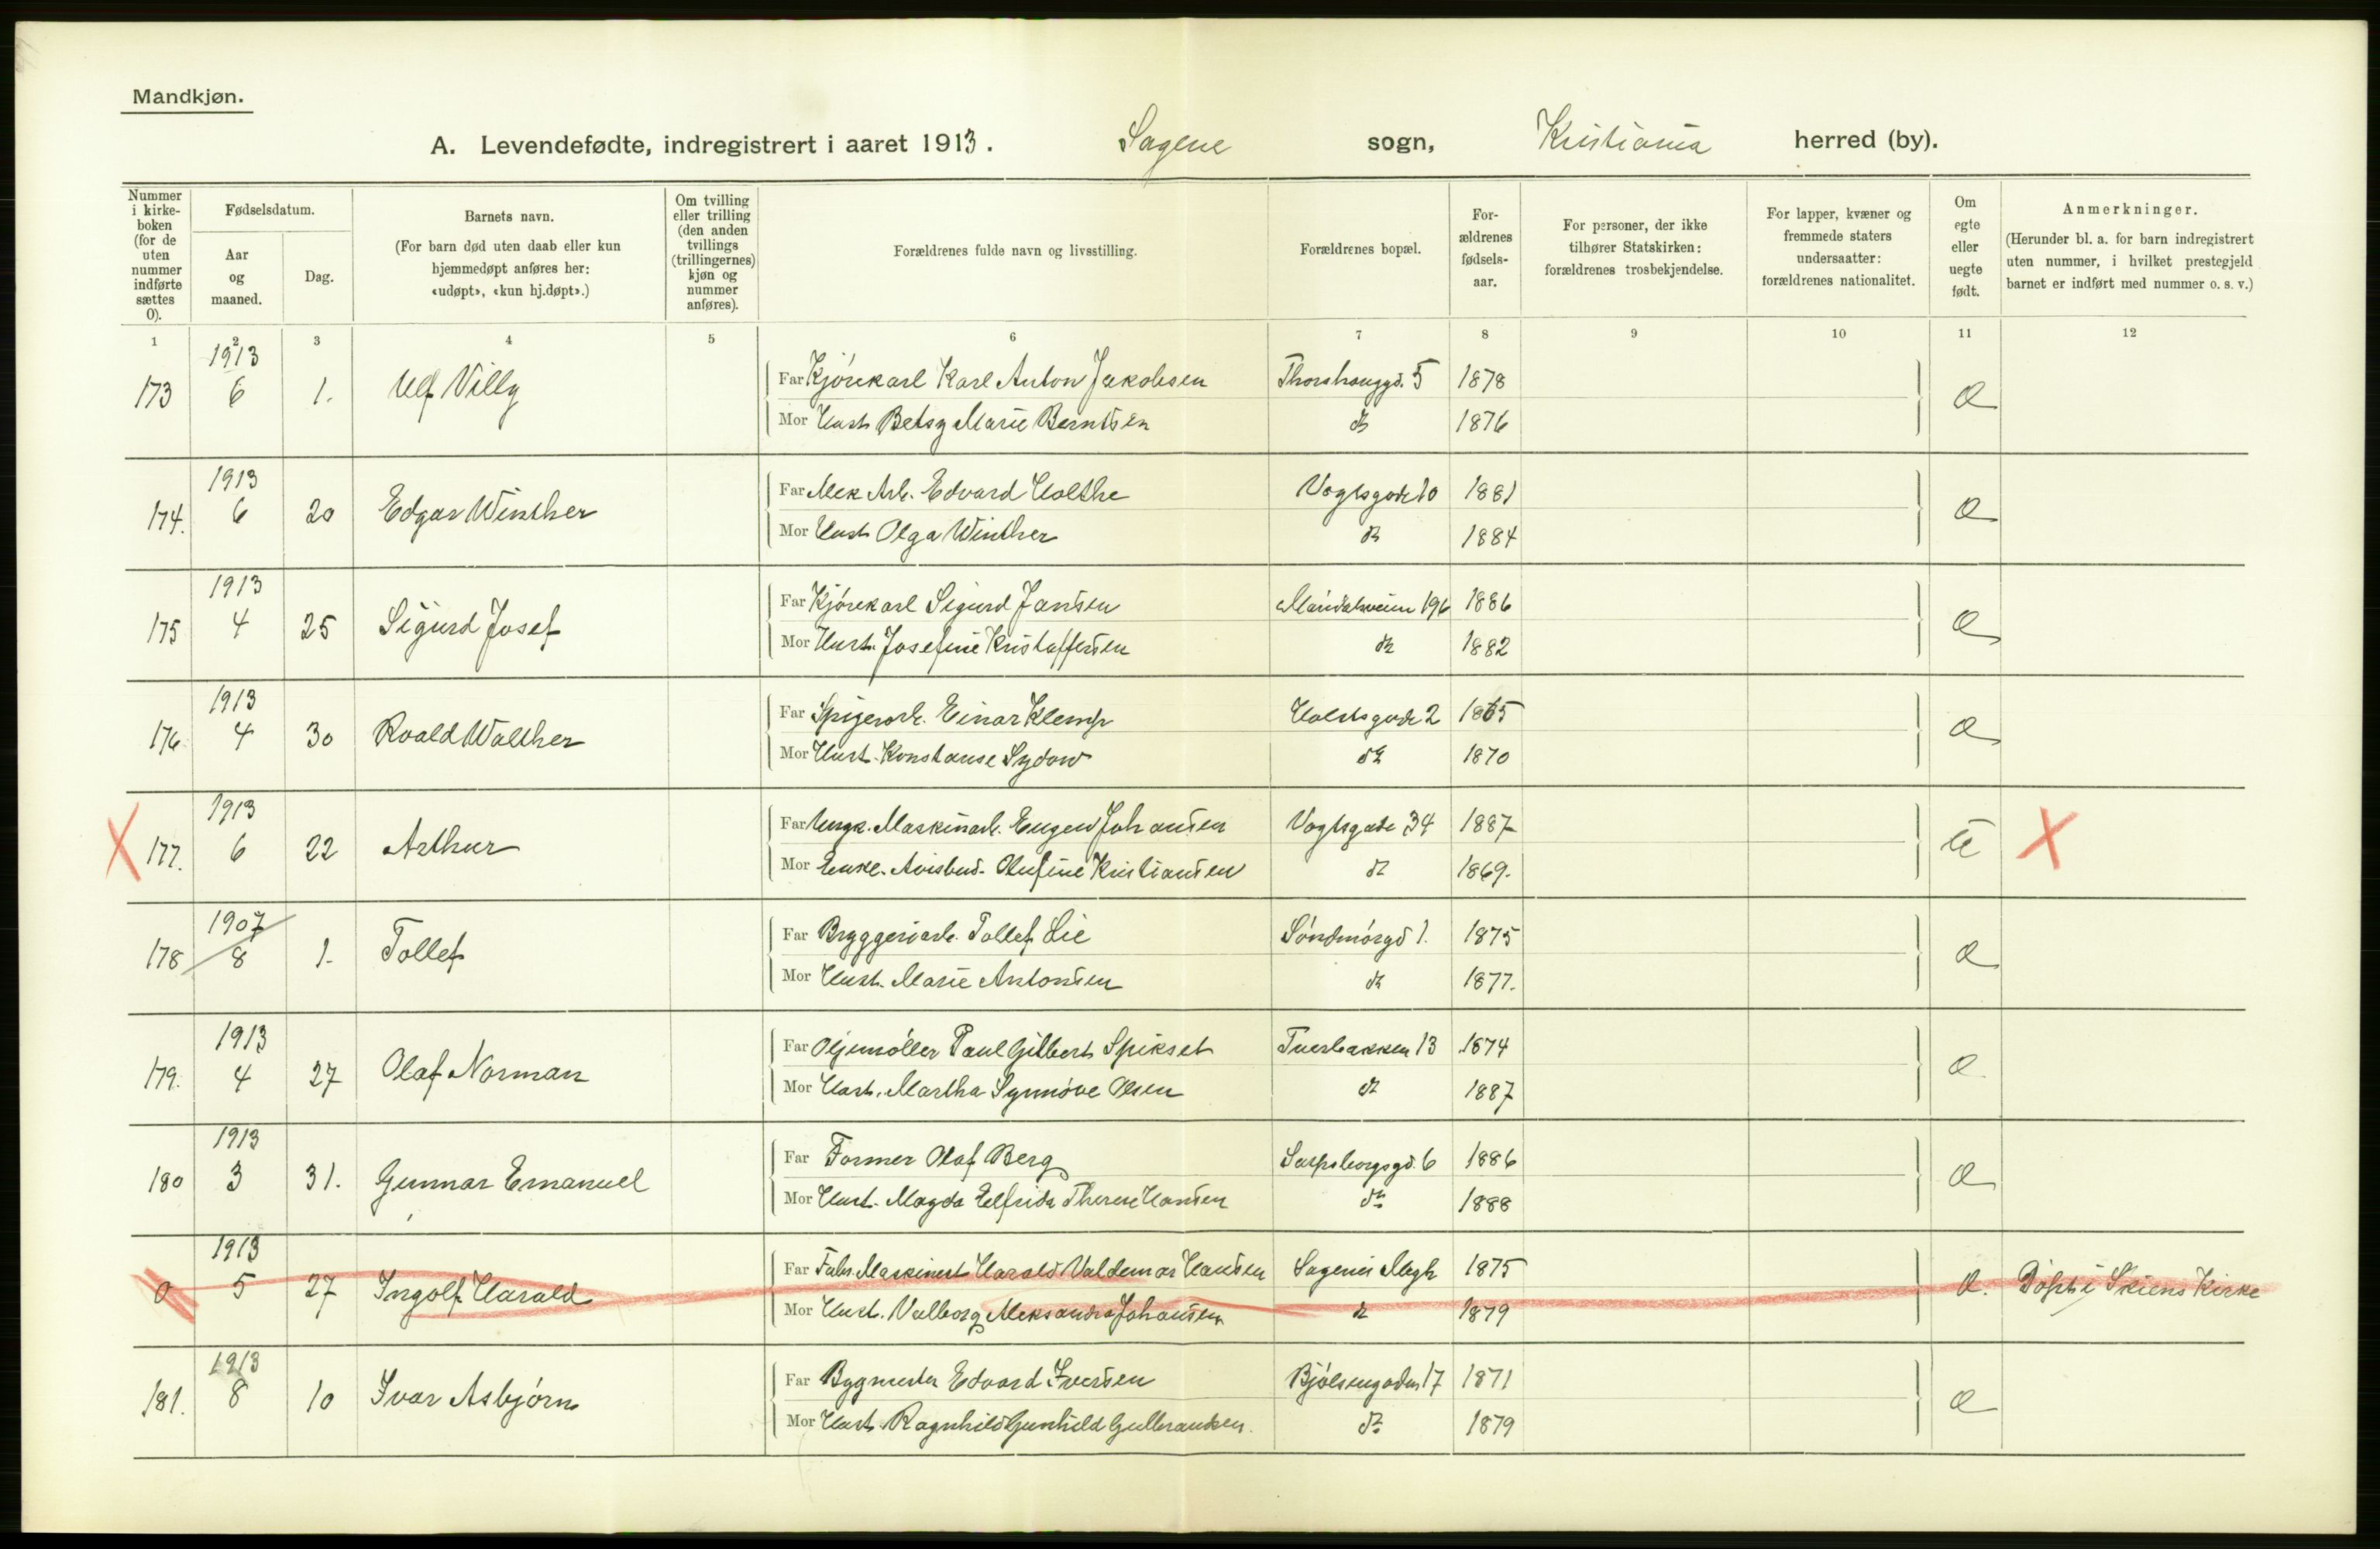 Mandkjøn.
A. Levendefødte, indregistrert i aaret 1913. Sagene sogn, Kristiania herred (by).
Nummer i kirke-boken (for de uten nummer indførte sættes 0).
Fødselsdatum.
Aar og maaned.
Dag.
Barnets navn.
(For barn død uten daab eller kun hjemmedøpt anføres her: «udøpt», «kun hj.døpt».)
Om tvilling eller trilling (den anden tvillings (trillingernes) kjøn og nummer anføres).
Forældrenes fulde navn og livsstilling.
Forældrenes bopæl.
For-ældrenes fødsels-aar.
For personer, der ikke tilhører Statskirken: forældrenes trosbekjendelse.
For lapper, kvæner og fremmede staters undersaatter: forældrenes nationalitet.
Om egte eller uegte født.
Anmerkninger.
(Herunder bl. a. for barn indregistrert uten nummer, i hvilket prestegjeld barnet er indført med nummer o. s. v.)
1 2 3 4 5 6 7 8 9 10 11 12
173 1913 6 1. Ulf Villy Far Kjørekarl Karl Anton Jakobsen Thorshauggd. 5 1878
Mor Hust Betsy Marie Berntsen do 1876
174. 1913 6 20 Edgar Winther Far Mek Arb. Edvard Holthe Vogtsgade 10 1881
Mor Hust Olga Winther do 1884
175 1913 4 25 Sigurd Josef Far Kjørekarl Sigurd Jansen 196 1886
Mor Hust. Josefine Kristoffersen do 1882
176 1913 4 30 Roald Walther Far Spigerarb. Einar Klemp Holstsgade 2 1865
Mor Hust. Konstanse Sydow do 1870
177. 1913 6 22 Arthur Far Ungk. Maskinarb. Eugen Johansen Vogtsgade 34 1887 X
Mor Enke. Avisbud. Olufine Kristiansen do 1869.
178 1907 8 1. Tollef Far Bryggeriarb. Tollef Lie Søndmørgd 1. 1875
Mor Hust. Marie Antonsen do 1877.
179. 1913 4 27 Olaf Norman Far Oljemøller Paul Gilbert Spikset Tuerbakken 13 1874
Mor Hust. Martha Synnøve Olsen do 1887
180 1913 3 31. Gunnar Emanuel Far Former Olaf Berg Sarpsborgsgd. 6 1886
Mor Hust. Magda Elfrida Therese Hansen do 1888
0 1913 5 27 Ingolf Harald Far Fabr. Maskinist Harald Valdemar Hansen Sagenes 1875 Døpt i Skiens Kirke
Mor Hust. Valborg Aleksandra Johansen do 1879
181. 1913 8 10 Ivar Asbjørn Far Bygmester Edvard Iversen Bjølsengaden 17 1871
Mor Hust Ragnhild Gunhild Gulbrandsen. do 1879